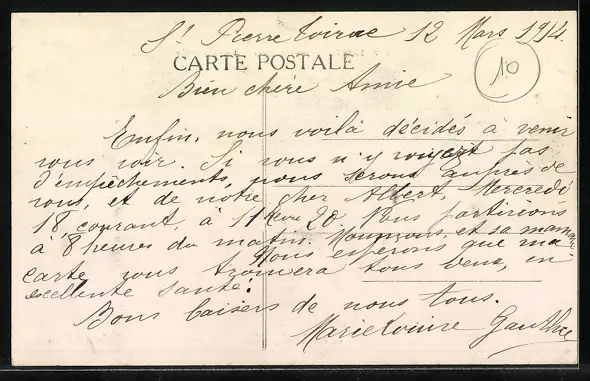 St Pierre Toirac 12 Mars 1914.
CARTE POSTALE
10
Bien chère Amie
Enfin, nous voilà décidés à venir
vous voir. Si vous n'y voyez pas
d'empêchements, nous serons auprès de
vous, et de notre cher Albert, Mercredi
18, courant, à 11 heure 20. Nous partirions
à 8 heures du matin. et sa maman
Nous espérons que ma
carte vous trouvera tous deux, en
excellente santé.
Bons baisers de nous tous.
Marie Louise